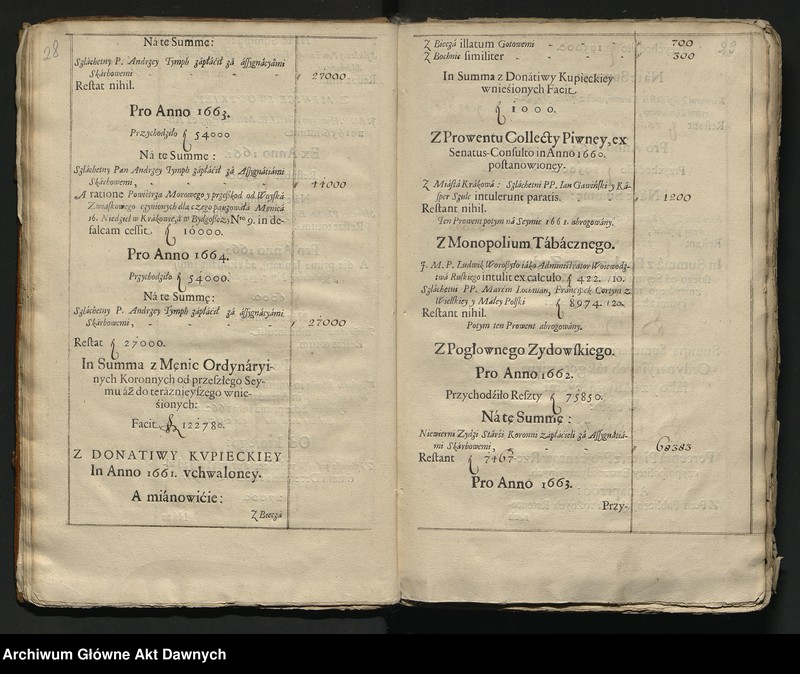 28
Na tę Summę:
Szláchetny P. Andrzey Tymph zápłáćił zá ássygnácyámi
Skárbowemi - - - - 27000
Restat nihil.
Pro Anno 1663.
Przychodziło ƒ 54000
Ná tę Summę:
Szláchetny Pan Andrzey Tymph zápłáćił zá Assygnátiámi
Skárbowemi, - - - - 44000
A ratione Powietrza Morowego y przeszkod od Woyská
Zwiąskowego czynionych dla czego pauzowáłá Męnicá
16. Niedźiel w Krákowie, á w Bydgoszczy Nro 9. in de-
falcam cessit ƒ 10000.
Pro Anno 1664.
Przychodźiło ƒ 54000.
Ná tę Summę:
Szláchetny P. Andrzey Tymph zápłáćił zá ássygnácyámi
Skárbowemi, - - - - 27000
Restat ƒ 27000.
In Summa z Męnic Ordynáryi-
nych Koronnych od przeszłego Sey-
mu áż do teráznieyszego wnie-
śionych:
Facit ƒ 122780.
Z DONATIWY KVPIECKIEY
In Anno 1661. vchwaloney.
A miánowićie:
Z Bieczá
23
Z Bieczá illatum Gotowemi - - - 700
Z Bochnie similiter - - - - 300
In Summa z Donátiwy Kupieckiey
wnieśionych Facit
ƒ 1000.
Z Prowentu Collecty Piwney, ex
Senatus-Consulto in Anno 1660.
postánowioney.
Z Miástá Krákowá: Szláchetni PP. Ian Gawiński y Ká-
sper Szulc intulerunt paratis. - - 1200
Restant nihil.
Ten Prowent potym ná Seymie 1661. abrogowány.
Z Monopolium Tábácznego.
J. M. P. Ludwik Woroszyło iáko Administrator Woiewodz-
twá Ruskiego intulit ex calculo ƒ 422. /10.
Szláchetni PP. Marćin Lochman, Fráncişek Cortyni z
Wielkiey y Máłey Polski ƒ 8974. /20.
Restant nihil.
Potym ten Prowent abrogowány.
Z Pogłownego Zydowskiego.
Pro Anno 1662.
Przychodźiło Reszty ƒ 75850.
Ná tę Summę:
Niewierni Zydźi Stárśi Koronni zápłáćili zá Assygnátiá-
mi Skárbowemi, - - - - 68383
Restant ƒ 7467
Pro Anno 1663.
Przy-
Archiwum Główne Akt Dawnych